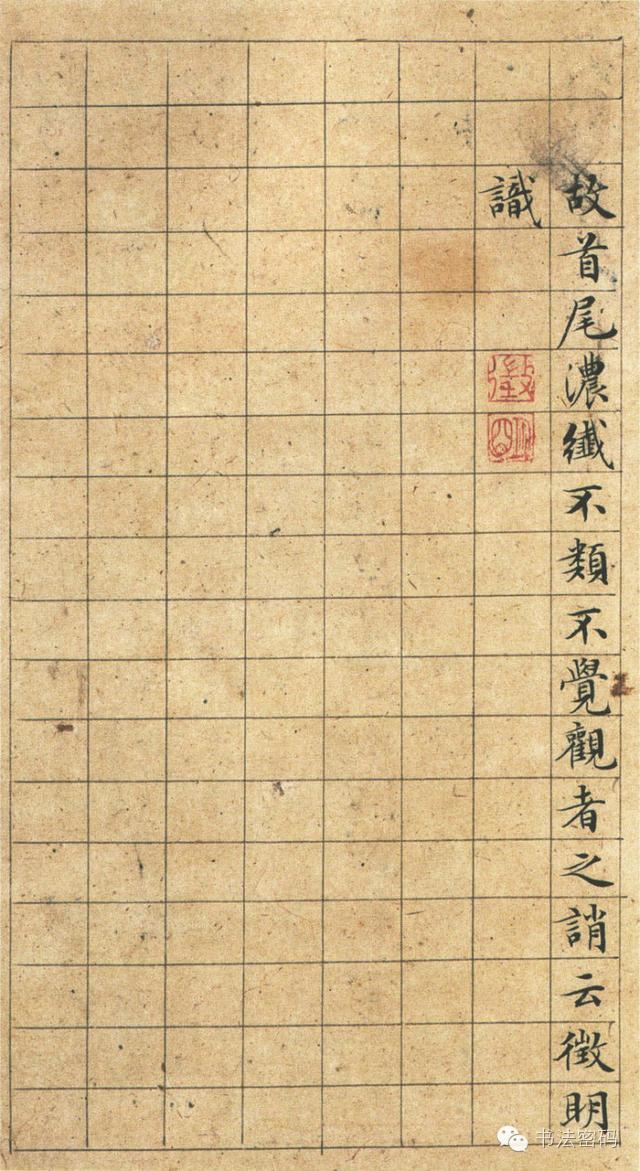 故首尾濃纖不類不覺觀者之誚云徵明
識
书法密码